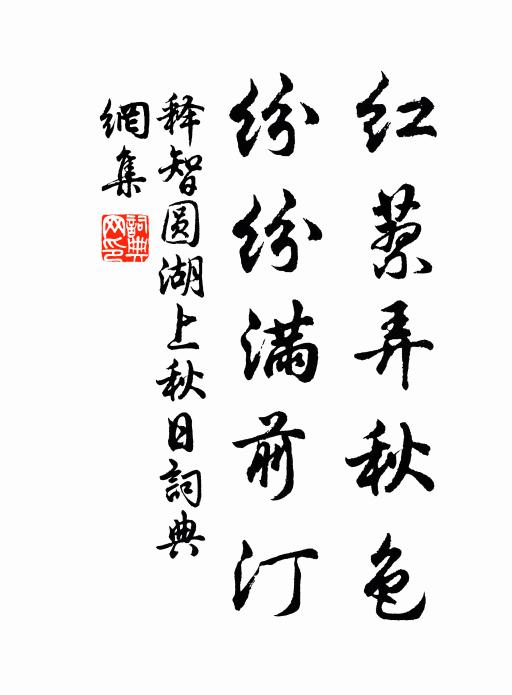 红蓼弄秋色
纷纷满前汀
释智圆湖上秋日詞典
網集
詞典网印